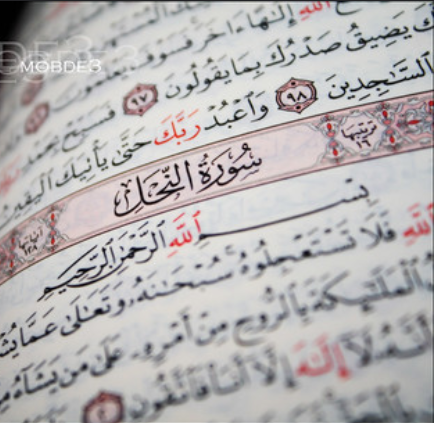 MOBDE3
ٱللَّهِ إِلَٰهًا ءَاخَرَ فَسَوْفَ يَعْلَمُونَ
يَضِيقُ صَدْرُكَ بِمَا يَقُولُونَ ٩٧ فَسَبِّحْ بِحَمْدِ
ٱلسَّٰجِدِينَ ٩٨ وَٱعْبُدْ رَبَّكَ حَتَّىٰ يَأْتِيَكَ ٱلْيَقِينُ
سُورَةُ النَّحْلِ
بِسْمِ ٱللَّهِ ٱلرَّحْمَٰنِ ٱلرَّحِيمِ
ٱللَّهِ فَلَا تَسْتَعْجِلُوهُ سُبْحَٰنَهُۥ وَتَعَٰلَىٰ عَمَّا
ٱلْمَلَٰٓئِكَةَ بِٱلرُّوحِ مِنْ أَمْرِهِۦ عَلَىٰ مَن يَشَآءُ
أَنَّهُۥ لَآ إِلَٰهَ إِلَّآ أَنَا۠ فَٱتَّقُونِ